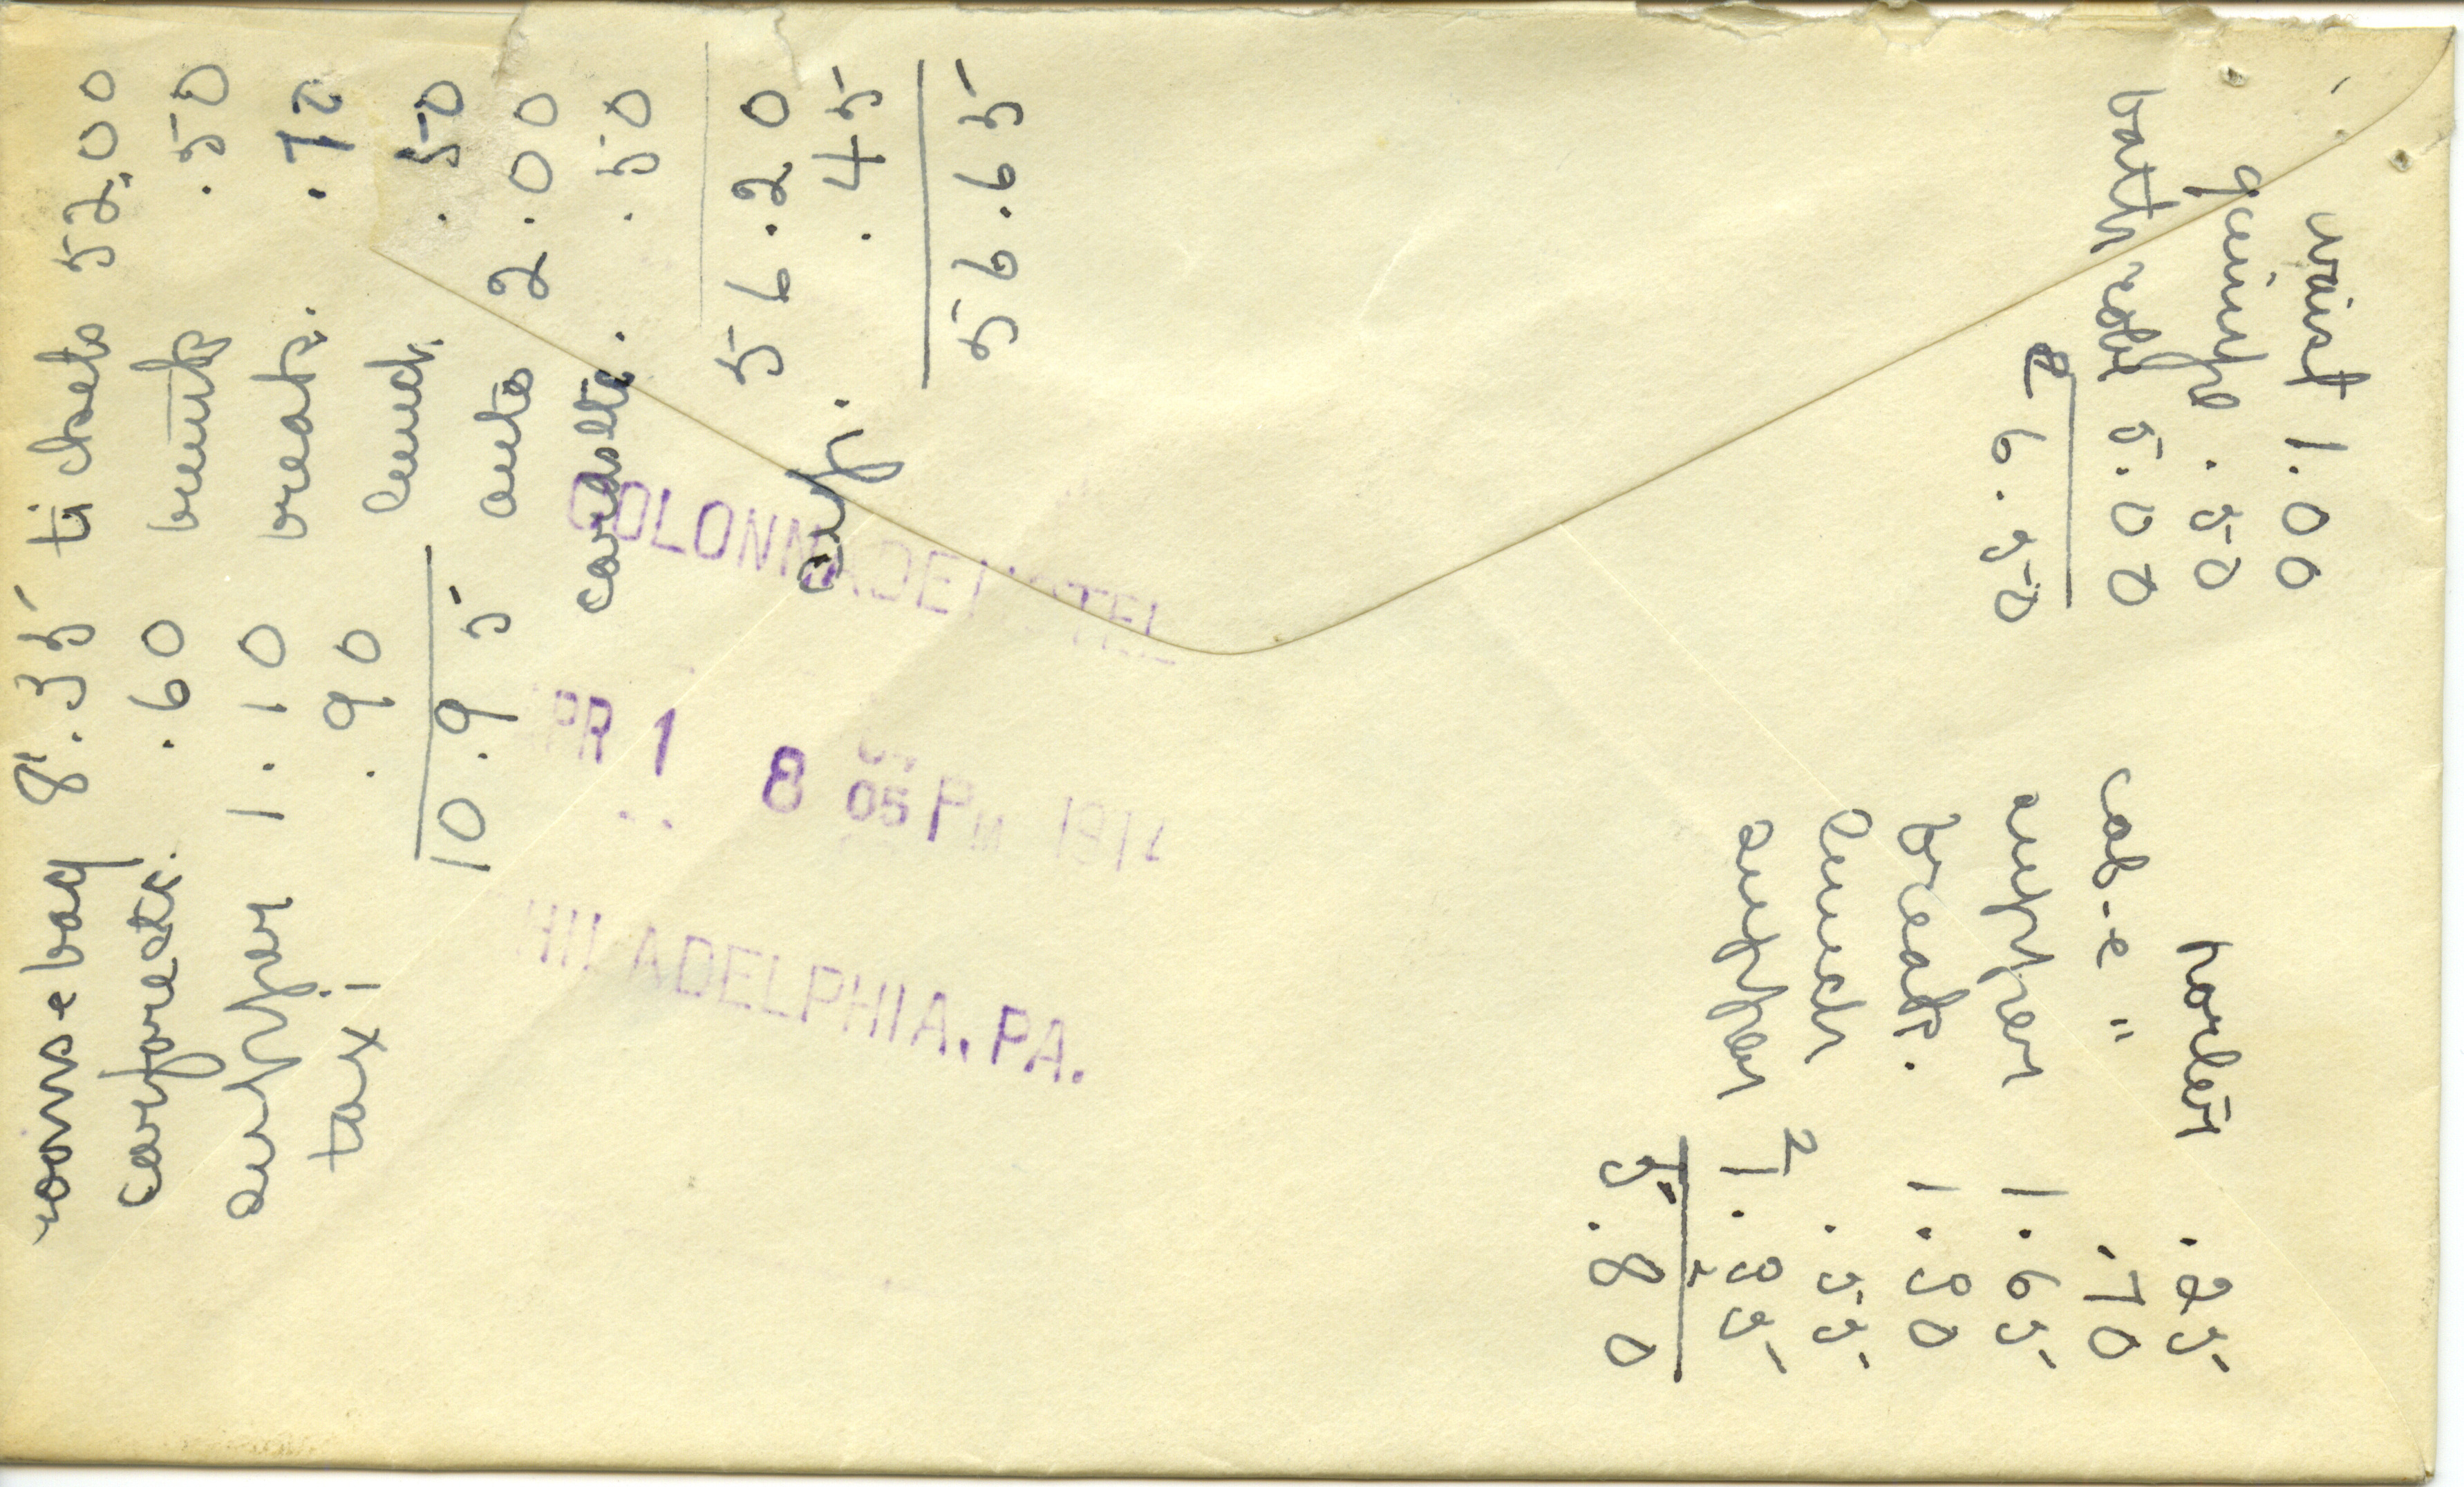 rooms + bag 8.35
carfare etc. .60
supper 1.10
taxi .90
10.95
tickets 52.00
.50
breakf. .70
lunch .50
auto 2.00
.50
56.20
sup. .45
56.65
COLONNADE HOTEL
APR 1 8 05 PM 191
PHILADELPHIA, PA.
waist 1.00
guimpe .50
bath robe 5.00
6.50
porter .25
cab - e " .70
supper 1.65
breakf. 1.30
lunch .55
supper 1.35
5.80